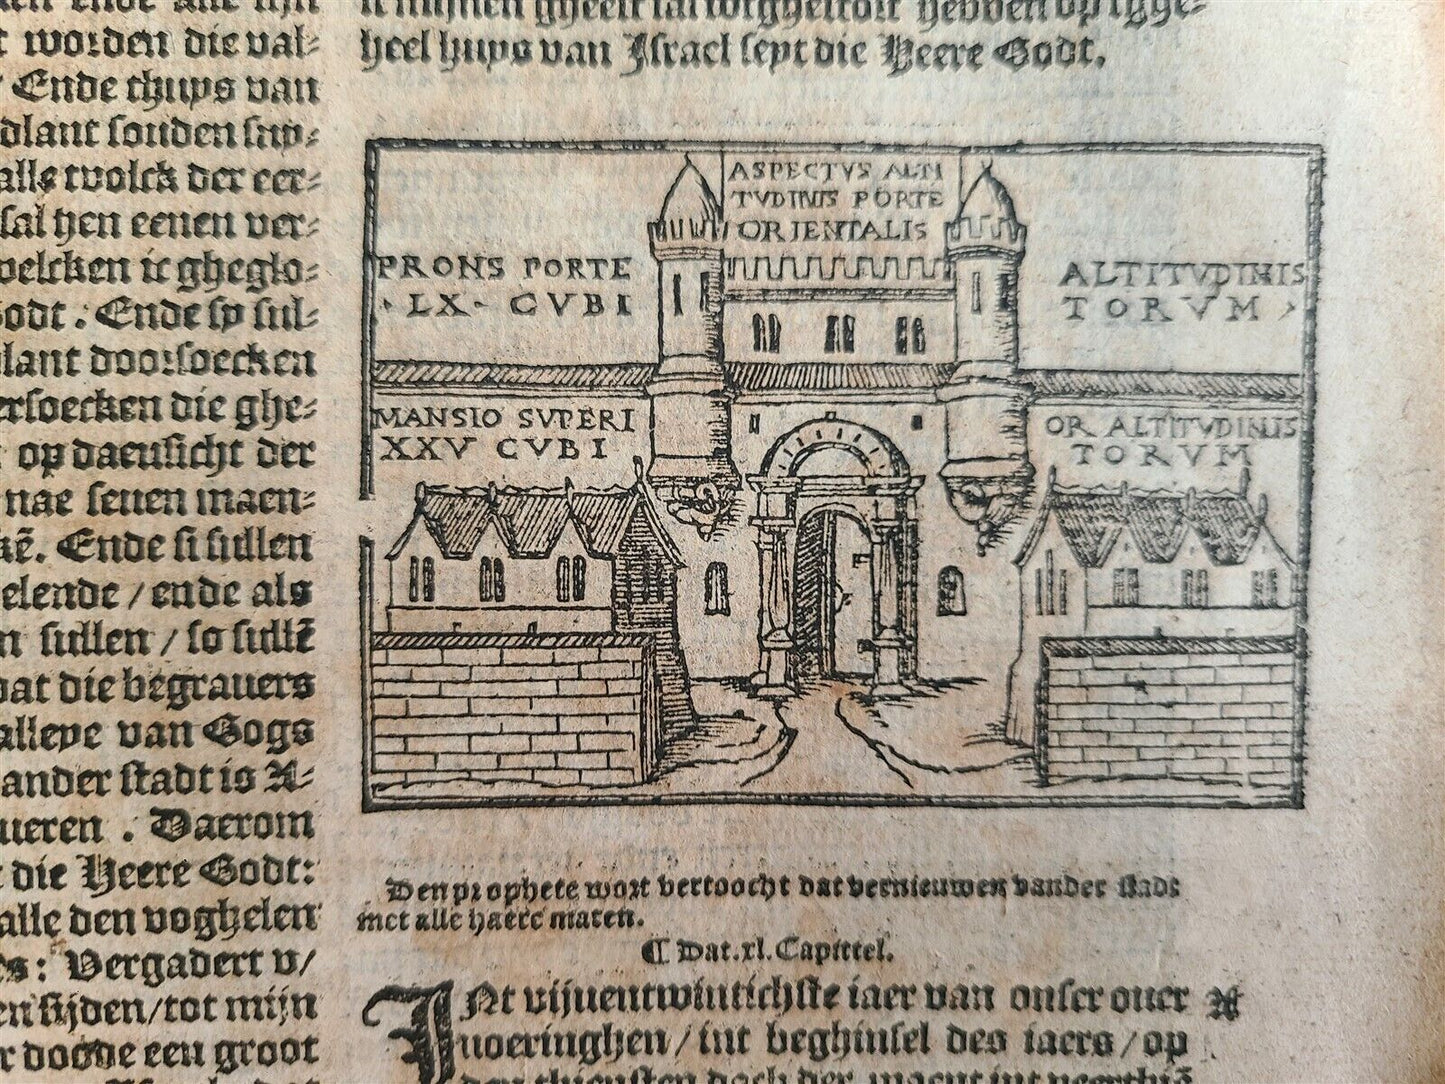 worden die val⸗
Ende thuys van
dlant souden suy⸗
alle volck der eer⸗
sal hen eenen ver⸗
welcken ic gheglo⸗
Godt. Ende sy sul⸗
lant doorsoecken
ersoecken die ghe⸗
op daensicht der
nae seuen maen⸗
Ende si sullen
elende / ende als
sullen / so sullē
dat die begrauers
alleye van Gogs
ander stadt is A⸗
ueren . Daerom
die Heere Godt:
alle den voghelen
Vergadert v/
sijden/tot mijn
doode een groot
heel huys van Israel seyt die Heere Godt.
ASPECTVS ALTI
TVDINIS PORTE
ORIENTALIS
PRONS PORTE
· LX · CVBI
ALTITVDINIS
TORVM
MANSIO SVPERI
XXV CVBI
OR ALTITVDINIS
TORVM
Den prophete wort vertoocht dat vernieuwen vander stadt
met alle haere maten.
¶ Dat .xl. Capittel.
INt vijuentwintichste iaer van onser ouer A
uoeringhen / int beghinsel des iaers / op